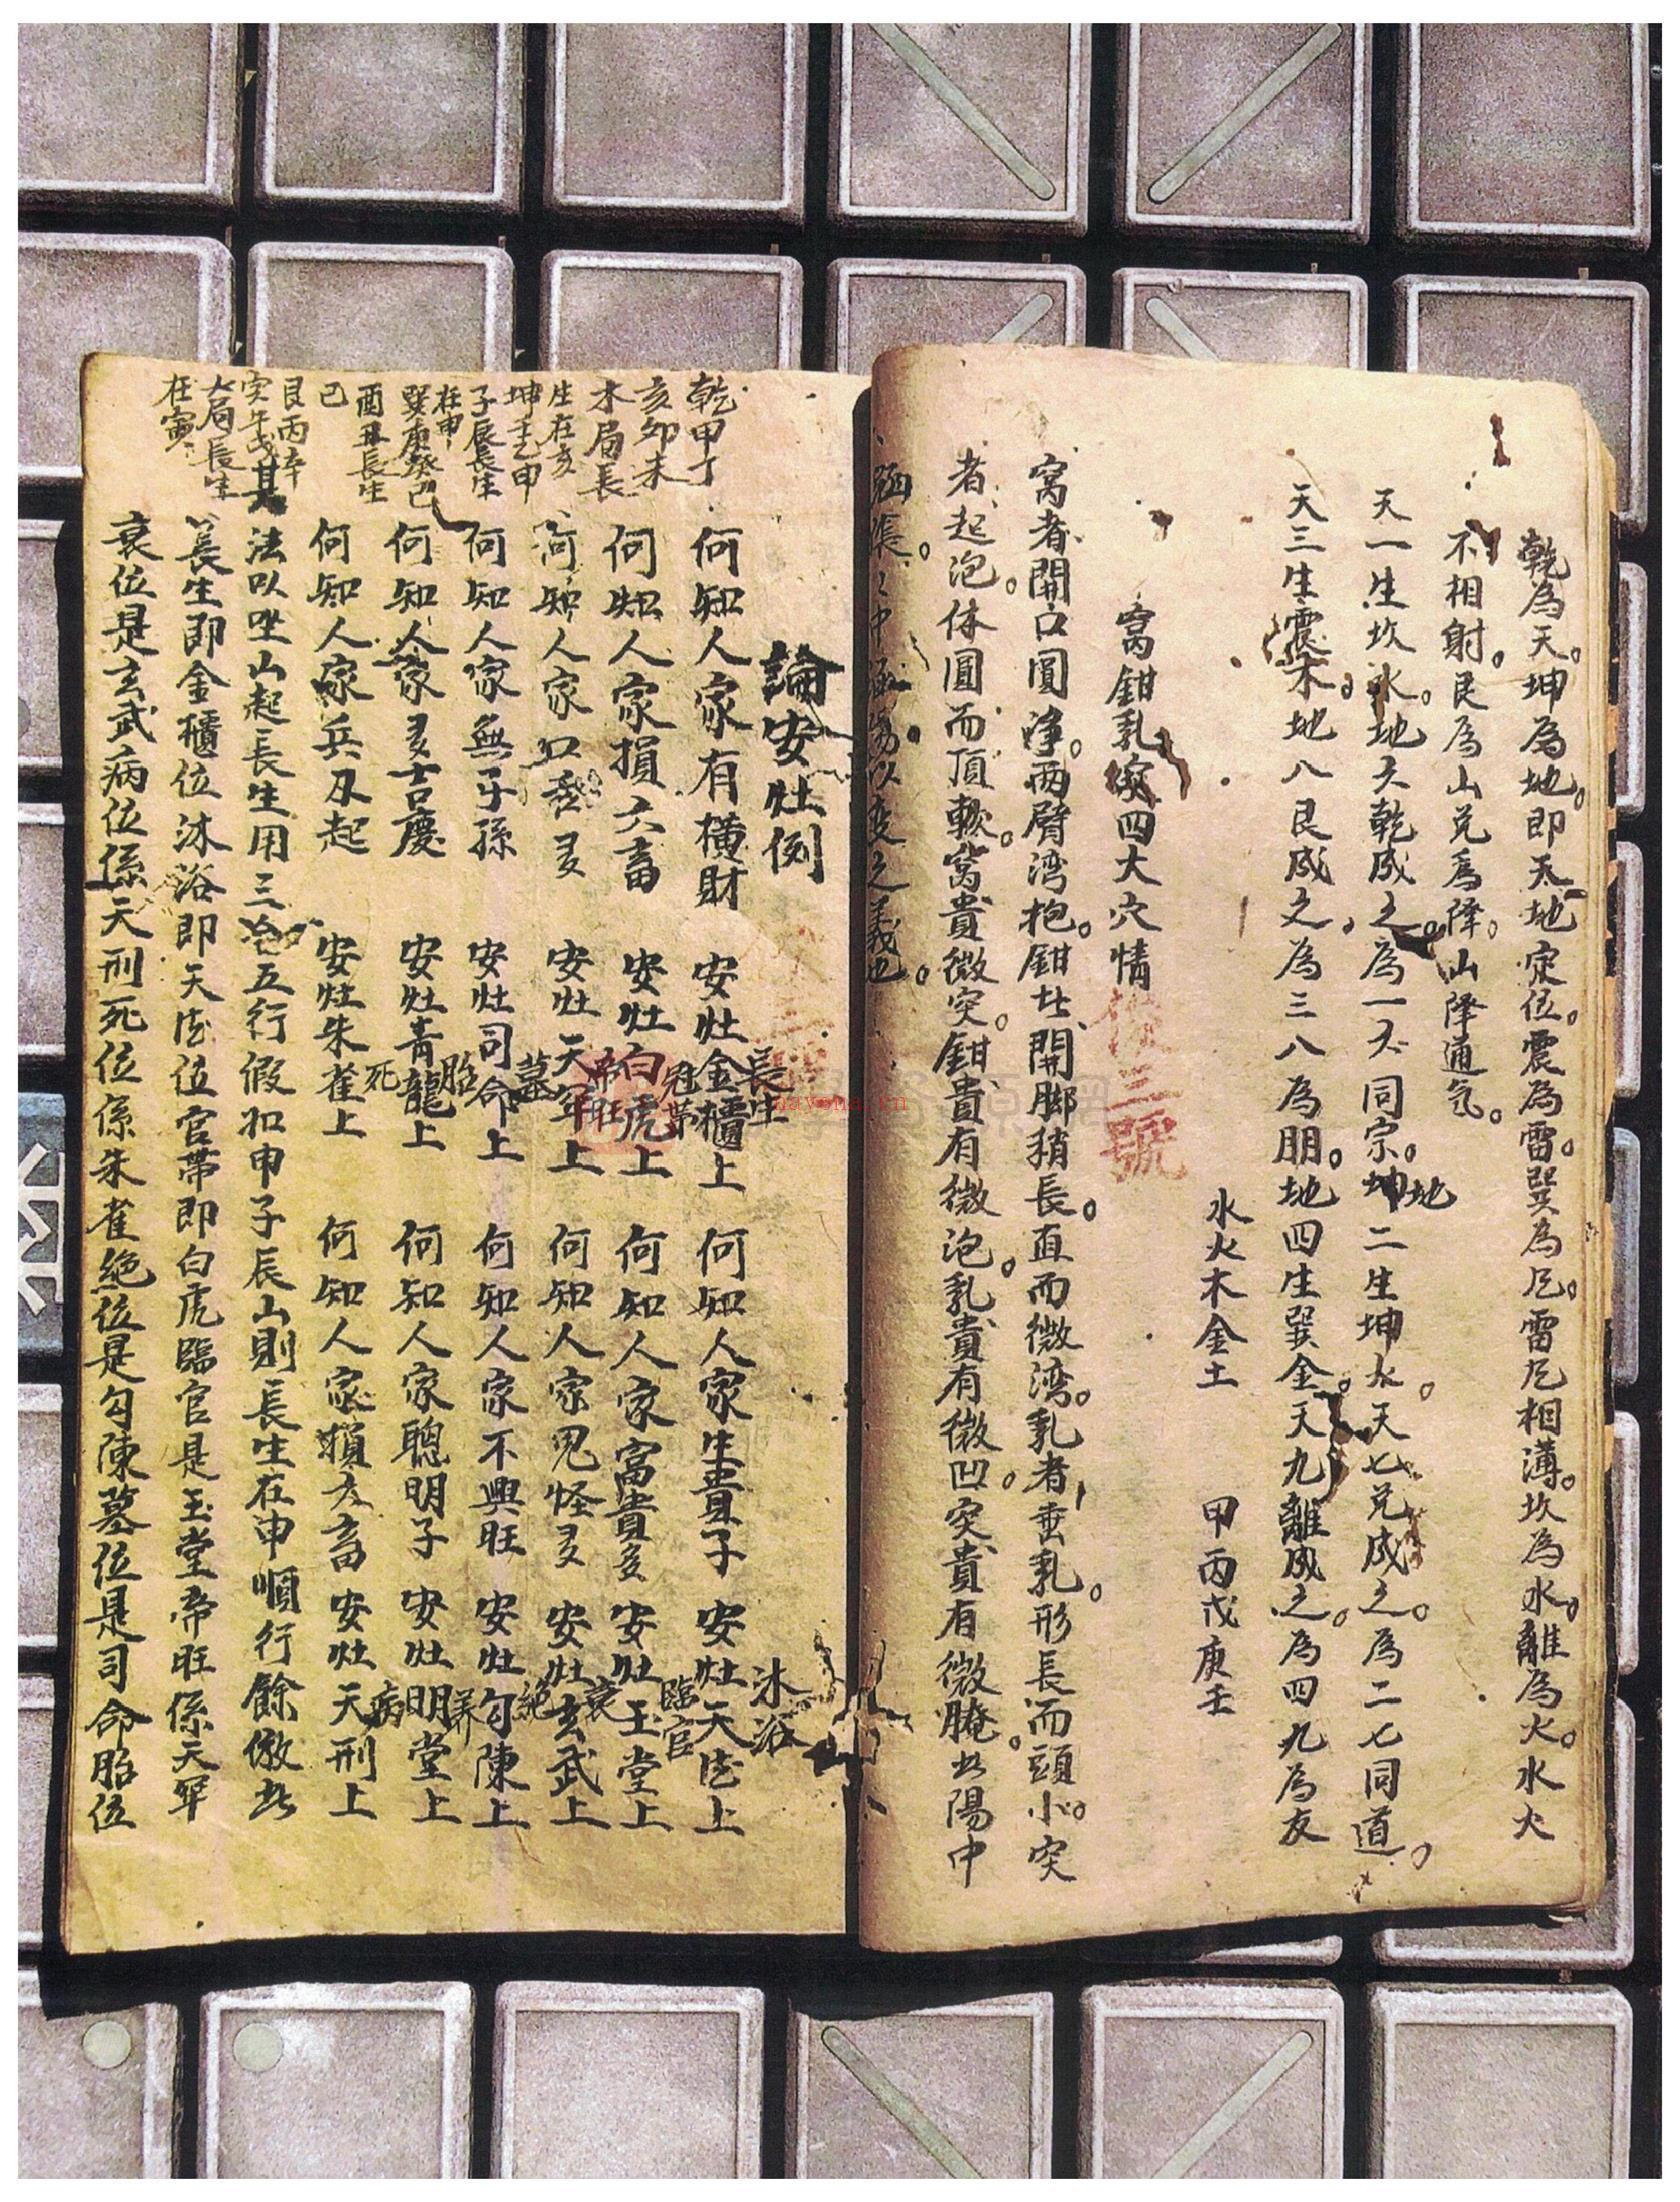 乾為天。坤為地。即天地定位。震為雷。巽為风。雷风相薄。坎為水。離為火。水火
不相射。艮為山兌為降。山降通气。
天一生坎水。地六乾成之。為一六同宗。坤地二生坤火。天七兌成之。為二七同道。
天三生震木。地八艮成之。為三八為朋。地四生巽金。天九離成之。為四九為友
水火木金土 甲丙戊庚壬
窩鉗乳突四大穴情
窝者開口圓净。两臂湾抱。鉗者開脚稍長。直而微湾。乳者垂乳。形長而頭小。突
者起泡。体圓而頂軟。窩貴微突。鉗貴有微泡。乳貴有微凹。突貴有微腌。此陽中
以变之義也。
三號
論安灶例
何知人家有横財 安灶金櫃上 長生 何知人家生貴子 安灶天德上 沐浴
何知人家損六畜 安灶白虎上 冠带 何知人家富貴多 安灶玉堂上 臨官
何知人家口舌多 安灶天牢上 帝旺 何知人家鬼怪多 安灶玄武上 衰
何知人家無子孫 安灶司命上 墓 何知人家不興旺 安灶勾陳上 絕
何知人家多吉慶 安灶青龍上 胎 何知人家聰明子 安灶明堂上 养
何知人家兵刃起 安灶朱雀上 死 何知人家損六畜 安灶天刑上 病
其法以坐山起長生用三合五行假如申子辰山則長生在申順行餘倣此
長生即金櫃位沐浴即天德位官带即白虎臨官是玉堂帝旺係天牢
衰位是玄武病位係天刑死位係朱雀絕位是勾陳墓位是司命胎位
乾甲丁
亥卯未
木局長
生在亥
坤壬乙申
子辰長生
在申
巽庚癸巳
酉丑長生
巳
艮丙辛
寅午戌
火局長生
在寅
nayona.cn